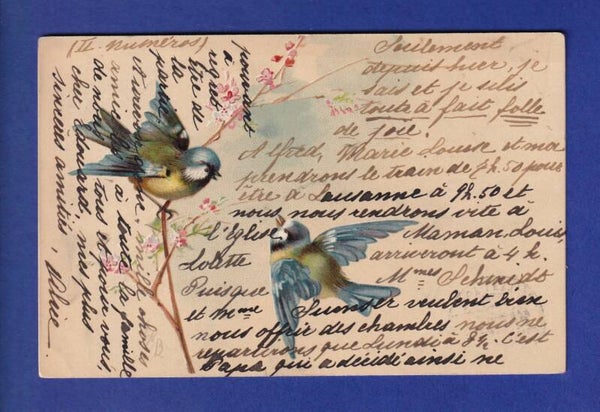 (II. numéros)
Seulement
depuis hier, je
sais et je suis
tout à fait folle
de joie.
Alfred, Marie Louise et ma
prendrons le train de 7h.50 pour
être à Lausanne à 9h.50 et
nous nous rendrons vite à
l'Eglise. Maman, Louis,
Lolotte arriveront à 4 h.
Puisque Mmes Schmidt
et Mme Sumser veulent bien
nous offrir des chambres nous ne
repartirons que Lundi à 8½. C'est
Papa qui a décidé ainsi ne
pouvant
à
être de
la
mille choses
à toute la famille
de nous tous et pour vous,
cher Edouard, mes plus
sincères amitiés. Aline.